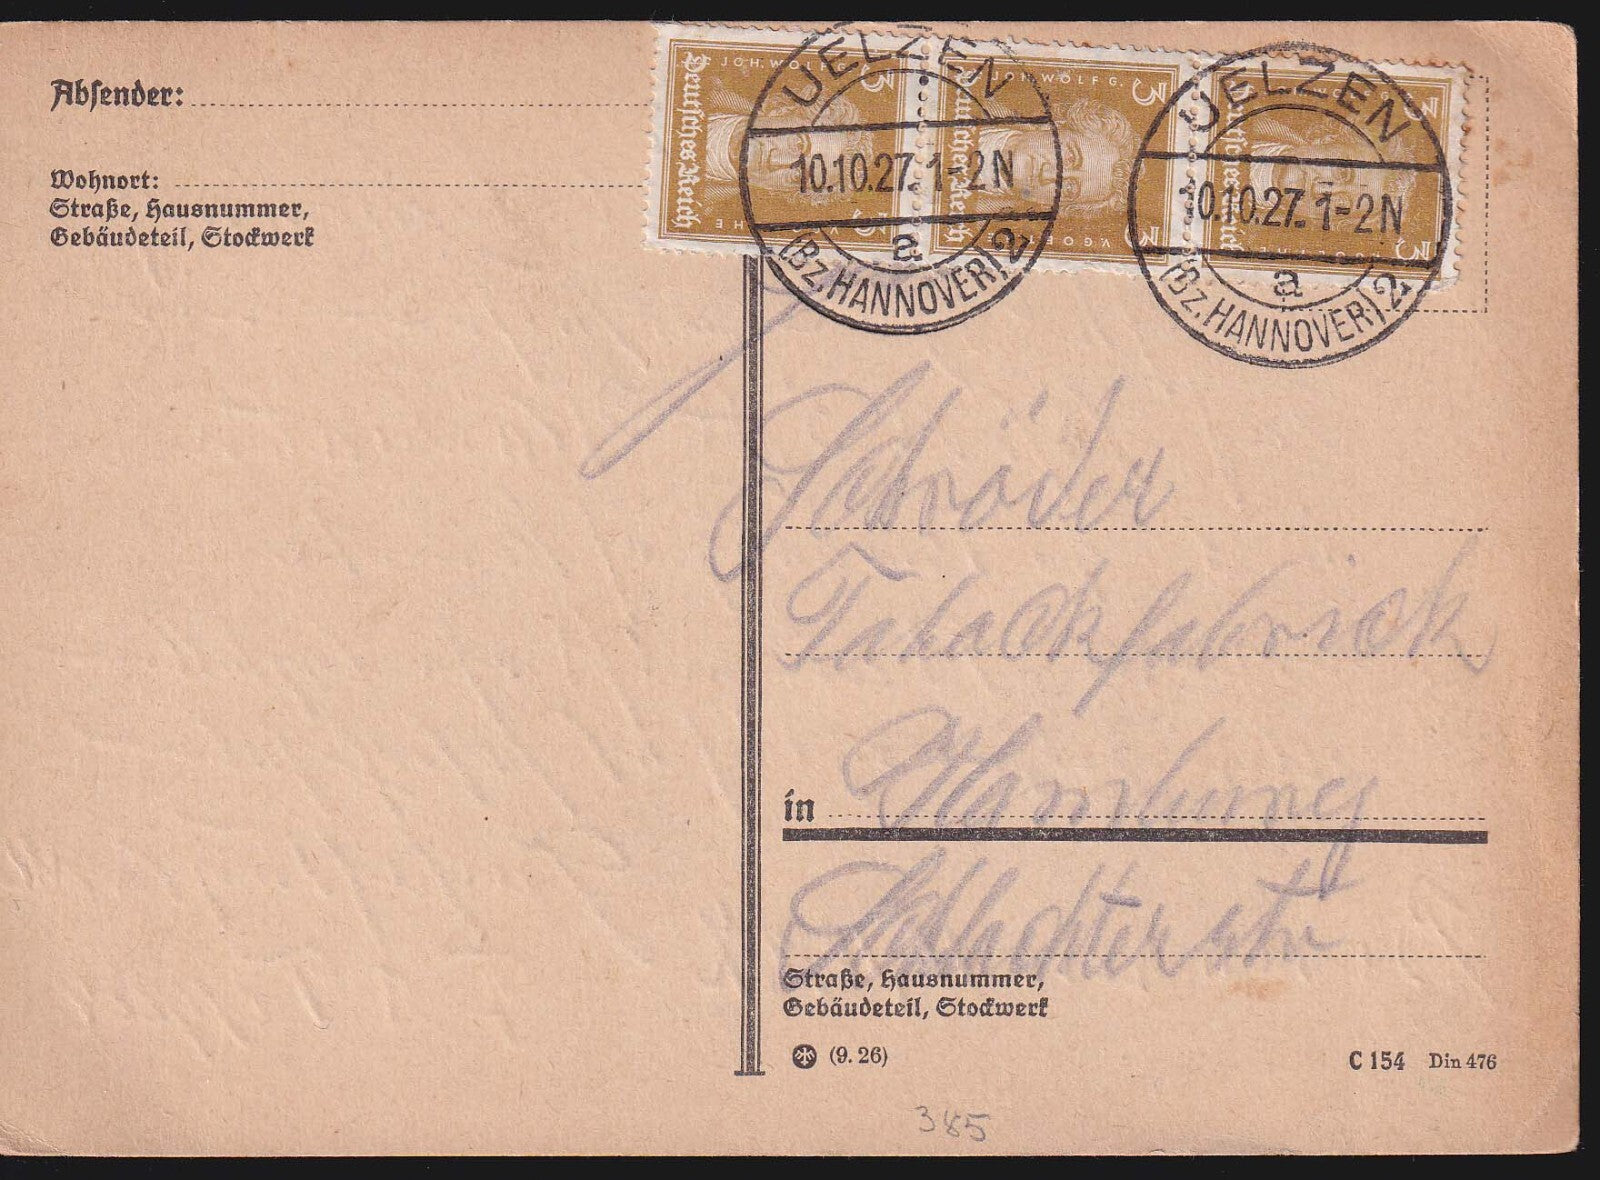 Absender:
Wohnort:
Straße, Hausnummer,
Gebäudeteil, Stockwerk
3 JOH. WOLFG. 3
Deutsches Reich
V. GOETHE
JOH. WOLFG. 3
Deutsches Reich
V. GOE 3
3
Deutsches Reich
3
UELZEN
10.10.27. 1-2N
a
(Bz. HANNOVER) 2
UELZEN
10.10.27. 1-2N
a
(Bz. HANNOVER) 2
Schröder
Tabackfabrick
in Hamburg
Schlachterstr
Straße, Hausnummer,
Gebäudeteil, Stockwerk
(9. 26)
C 154 Din 476
385